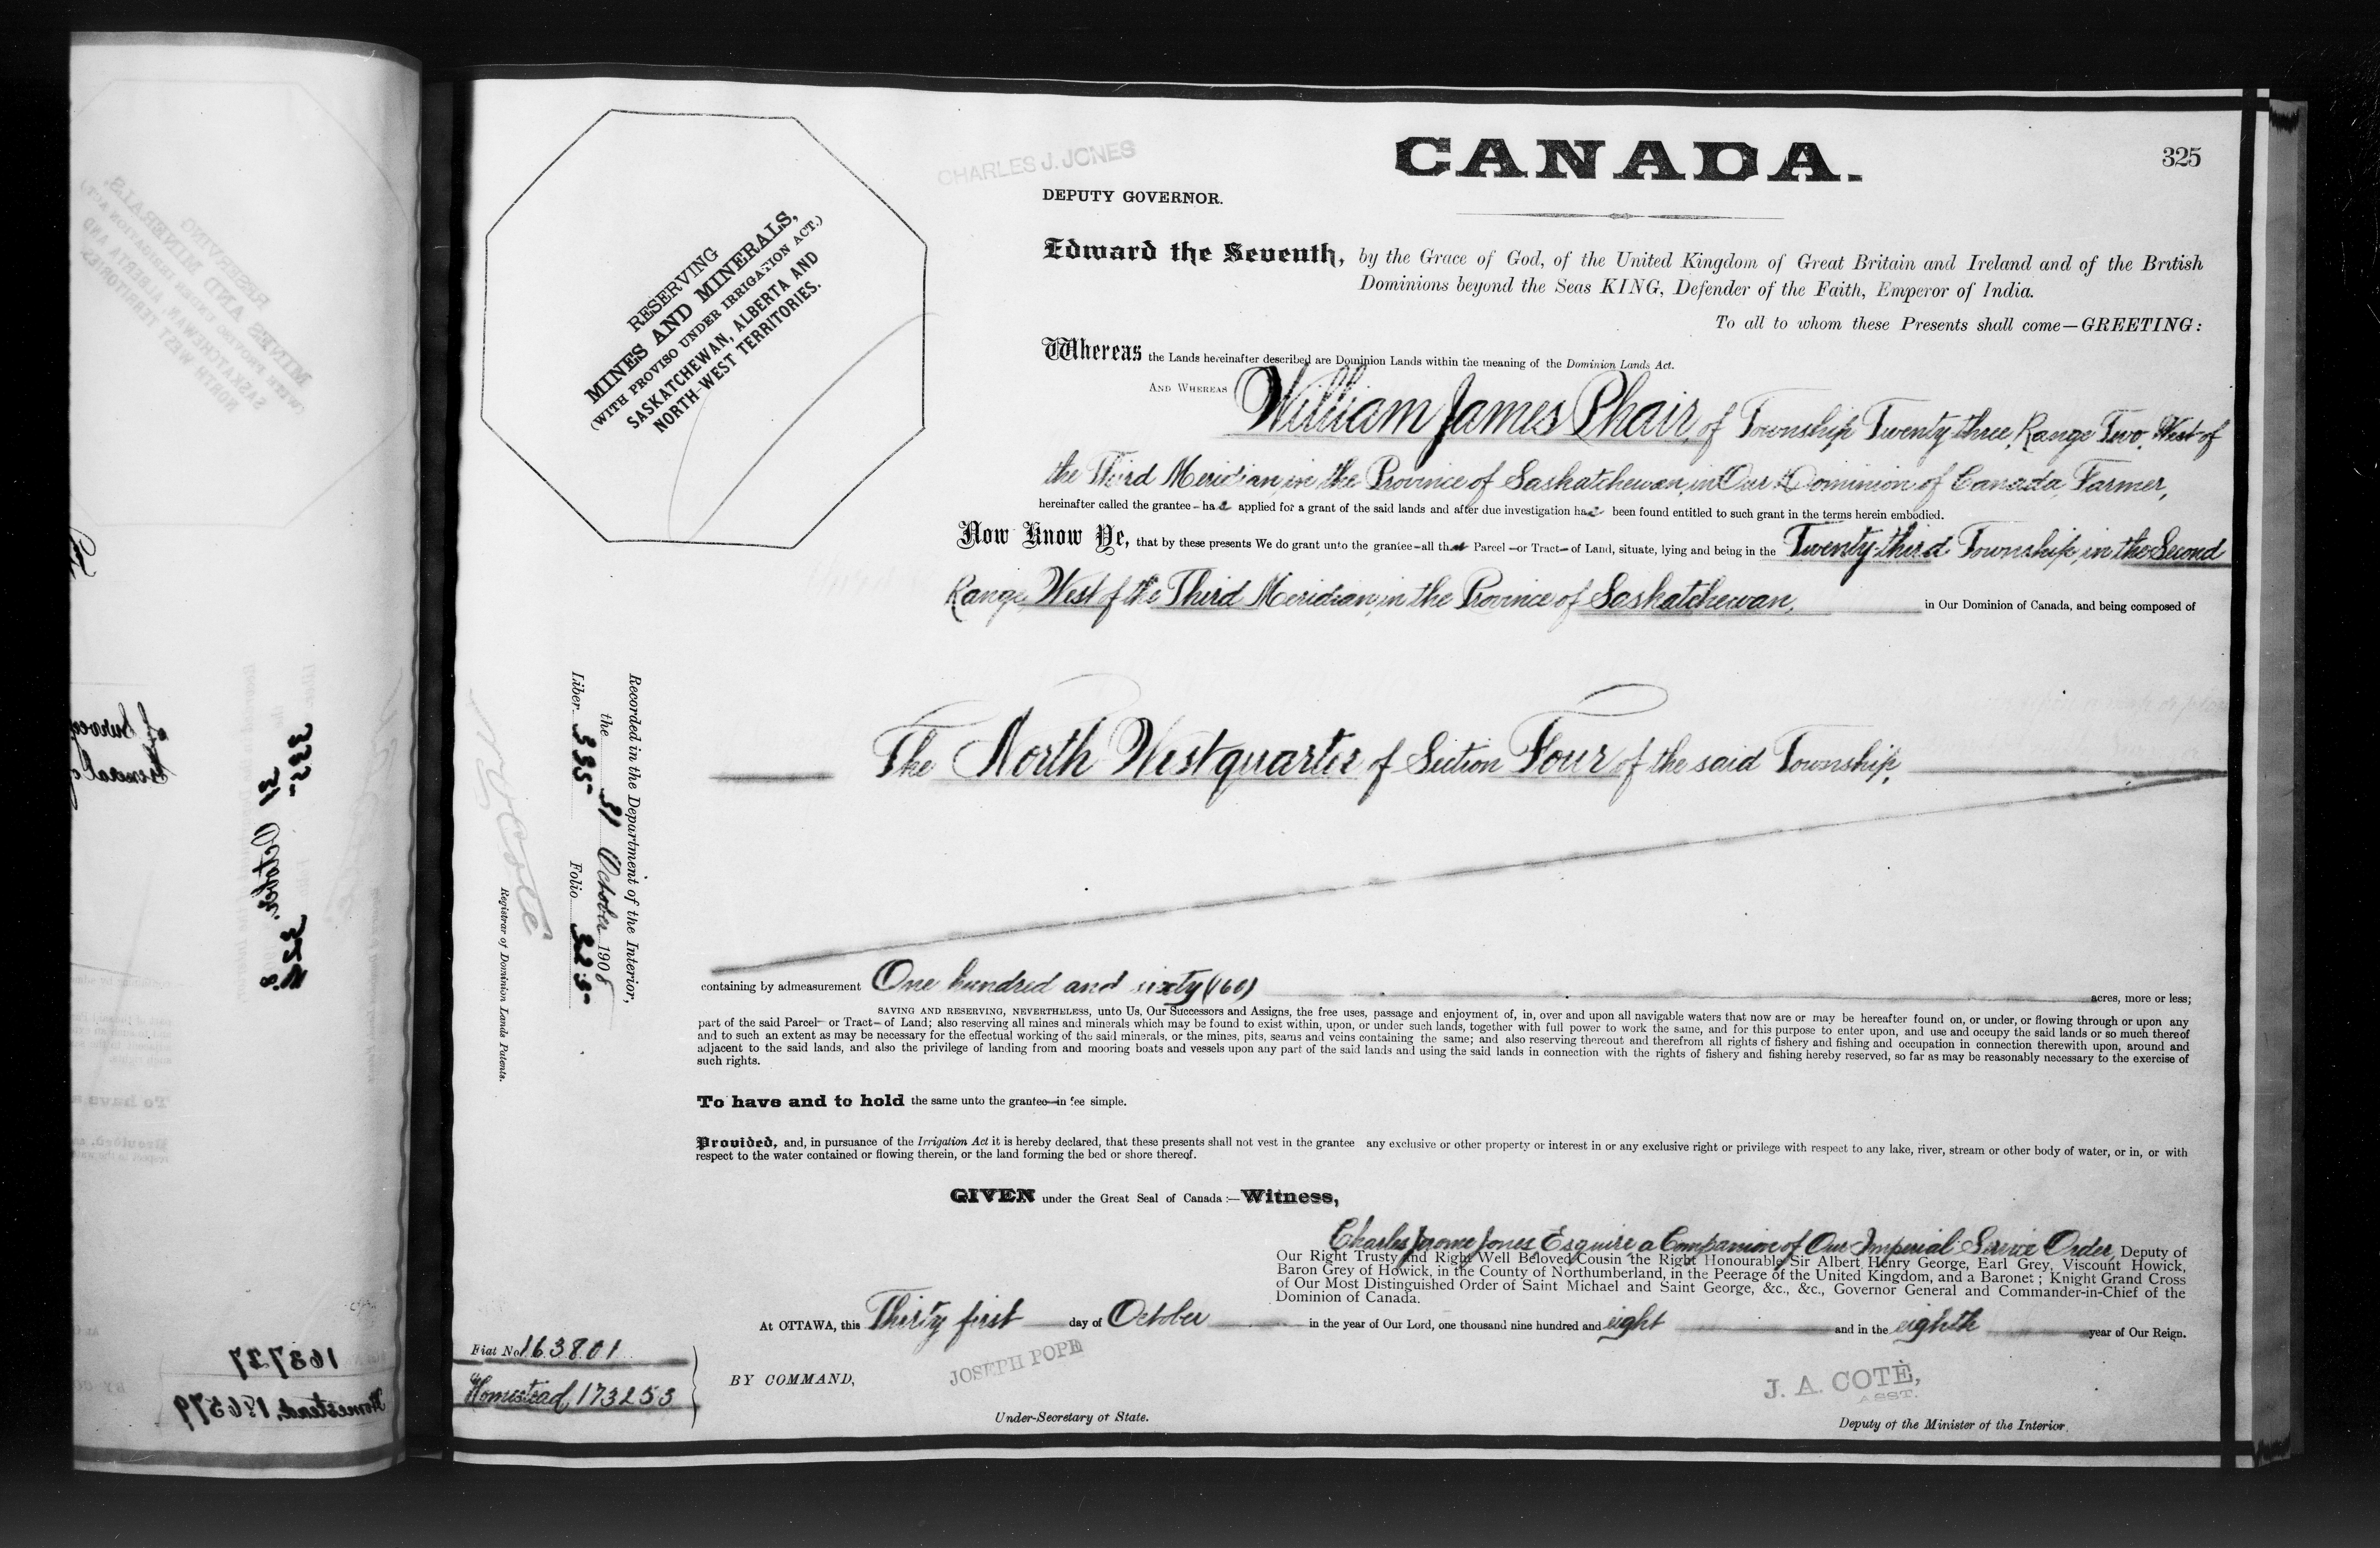 CANADA.
325
CHARLES J. JONES
DEPUTY GOVERNOR.
RESERVING
MINES AND MINERALS,
(WITH PROVISO UNDER IRRIGATION ACT.)
SASKATCHEWAN, ALBERTA AND
NORTH-WEST TERRITORIES.
Edward the Seventh, by the Grace of God, of the United Kingdom of Great Britain and Ireland and of the British
Dominions beyond the Seas KING, Defender of the Faith, Emperor of India.
To all to whom these Presents shall come—GREETING:
Whereas the Lands hereinafter described are Dominion Lands within the meaning of the Dominion Lands Act.
AND WHEREAS William James Phair, of Township Twenty three, Range Two, West of
the Third Meridian, in the Province of Saskatchewan, in Our Dominion of Canada, Farmer,
hereinafter called the grantee – has applied for a grant of the said lands and after due investigation has been found entitled to such grant in the terms herein embodied.
Now Know Ye, that by these presents We do grant unto the grantee – all that Parcel – or Tract – of Land, situate, lying and being in the Twenty third Township, in the Second
Range, West of the Third Meridian, in the Province of Saskatchewan, in Our Dominion of Canada, and being composed of
The North West quarter of Section Four of the said Township,
containing by admeasurement One hundred and sixty (160) acres, more or less;
SAVING AND RESERVING, NEVERTHELESS, unto Us, Our Successors and Assigns, the free uses, passage and enjoyment of, in, over and upon all navigable waters that now are or may be hereafter found on, or under, or flowing through or upon any
part of the said Parcel – or Tract – of Land; also reserving all mines and minerals which may be found to exist within, upon, or under such lands, together with full power to work the same, and for this purpose to enter upon, and use and occupy the said lands or so much thereof
and to such an extent as may be necessary for the effectual working of the said minerals, or the mines, pits, seams and veins containing the same; and also reserving thereout and therefrom all rights of fishery and fishing and occupation in connection therewith upon, around and
adjacent to the said lands, and also the privilege of landing from and mooring boats and vessels upon any part of the said lands and using the said lands in connection with the rights of fishery and fishing hereby reserved, so far as may be reasonably necessary to the exercise of
such rights.
To have and to hold the same unto the grantee – in fee simple.
Provided, and, in pursuance of the Irrigation Act it is hereby declared, that these presents shall not vest in the grantee any exclusive or other property or interest in or any exclusive right or privilege with respect to any lake, river, stream or other body of water, or in, or with
respect to the water contained or flowing therein, or the land forming the bed or shore thereof.
GIVEN under the Great Seal of Canada:—Witness,
Charles Jerome Jones Esquire a Companion of Our Imperial Service Order, Deputy of
Our Right Trusty and Right Well Beloved Cousin the Right Honourable Sir Albert Henry George, Earl Grey, Viscount Howick,
Baron Grey of Howick, in the County of Northumberland, in the Peerage of the United Kingdom, and a Baronet; Knight Grand Cross
of Our Most Distinguished Order of Saint Michael and Saint George, &c., &c., Governor General and Commander-in-Chief of the
Dominion of Canada.
At OTTAWA, this Thirty first day of October in the year of Our Lord, one thousand nine hundred and eight and in the eighth year of Our Reign.
BY COMMAND,
JOSEPH POPE
Under-Secretary of State.
J. A. COTÉ,
ASST.
Deputy of the Minister of the Interior.
Recorded in the Department of the Interior,
the 31 October 1908
Liber 335 Folio 325
N. O. Coté
Registrar of Dominion Lands Patents.
Fiat No. 163801
Homestead, 173253